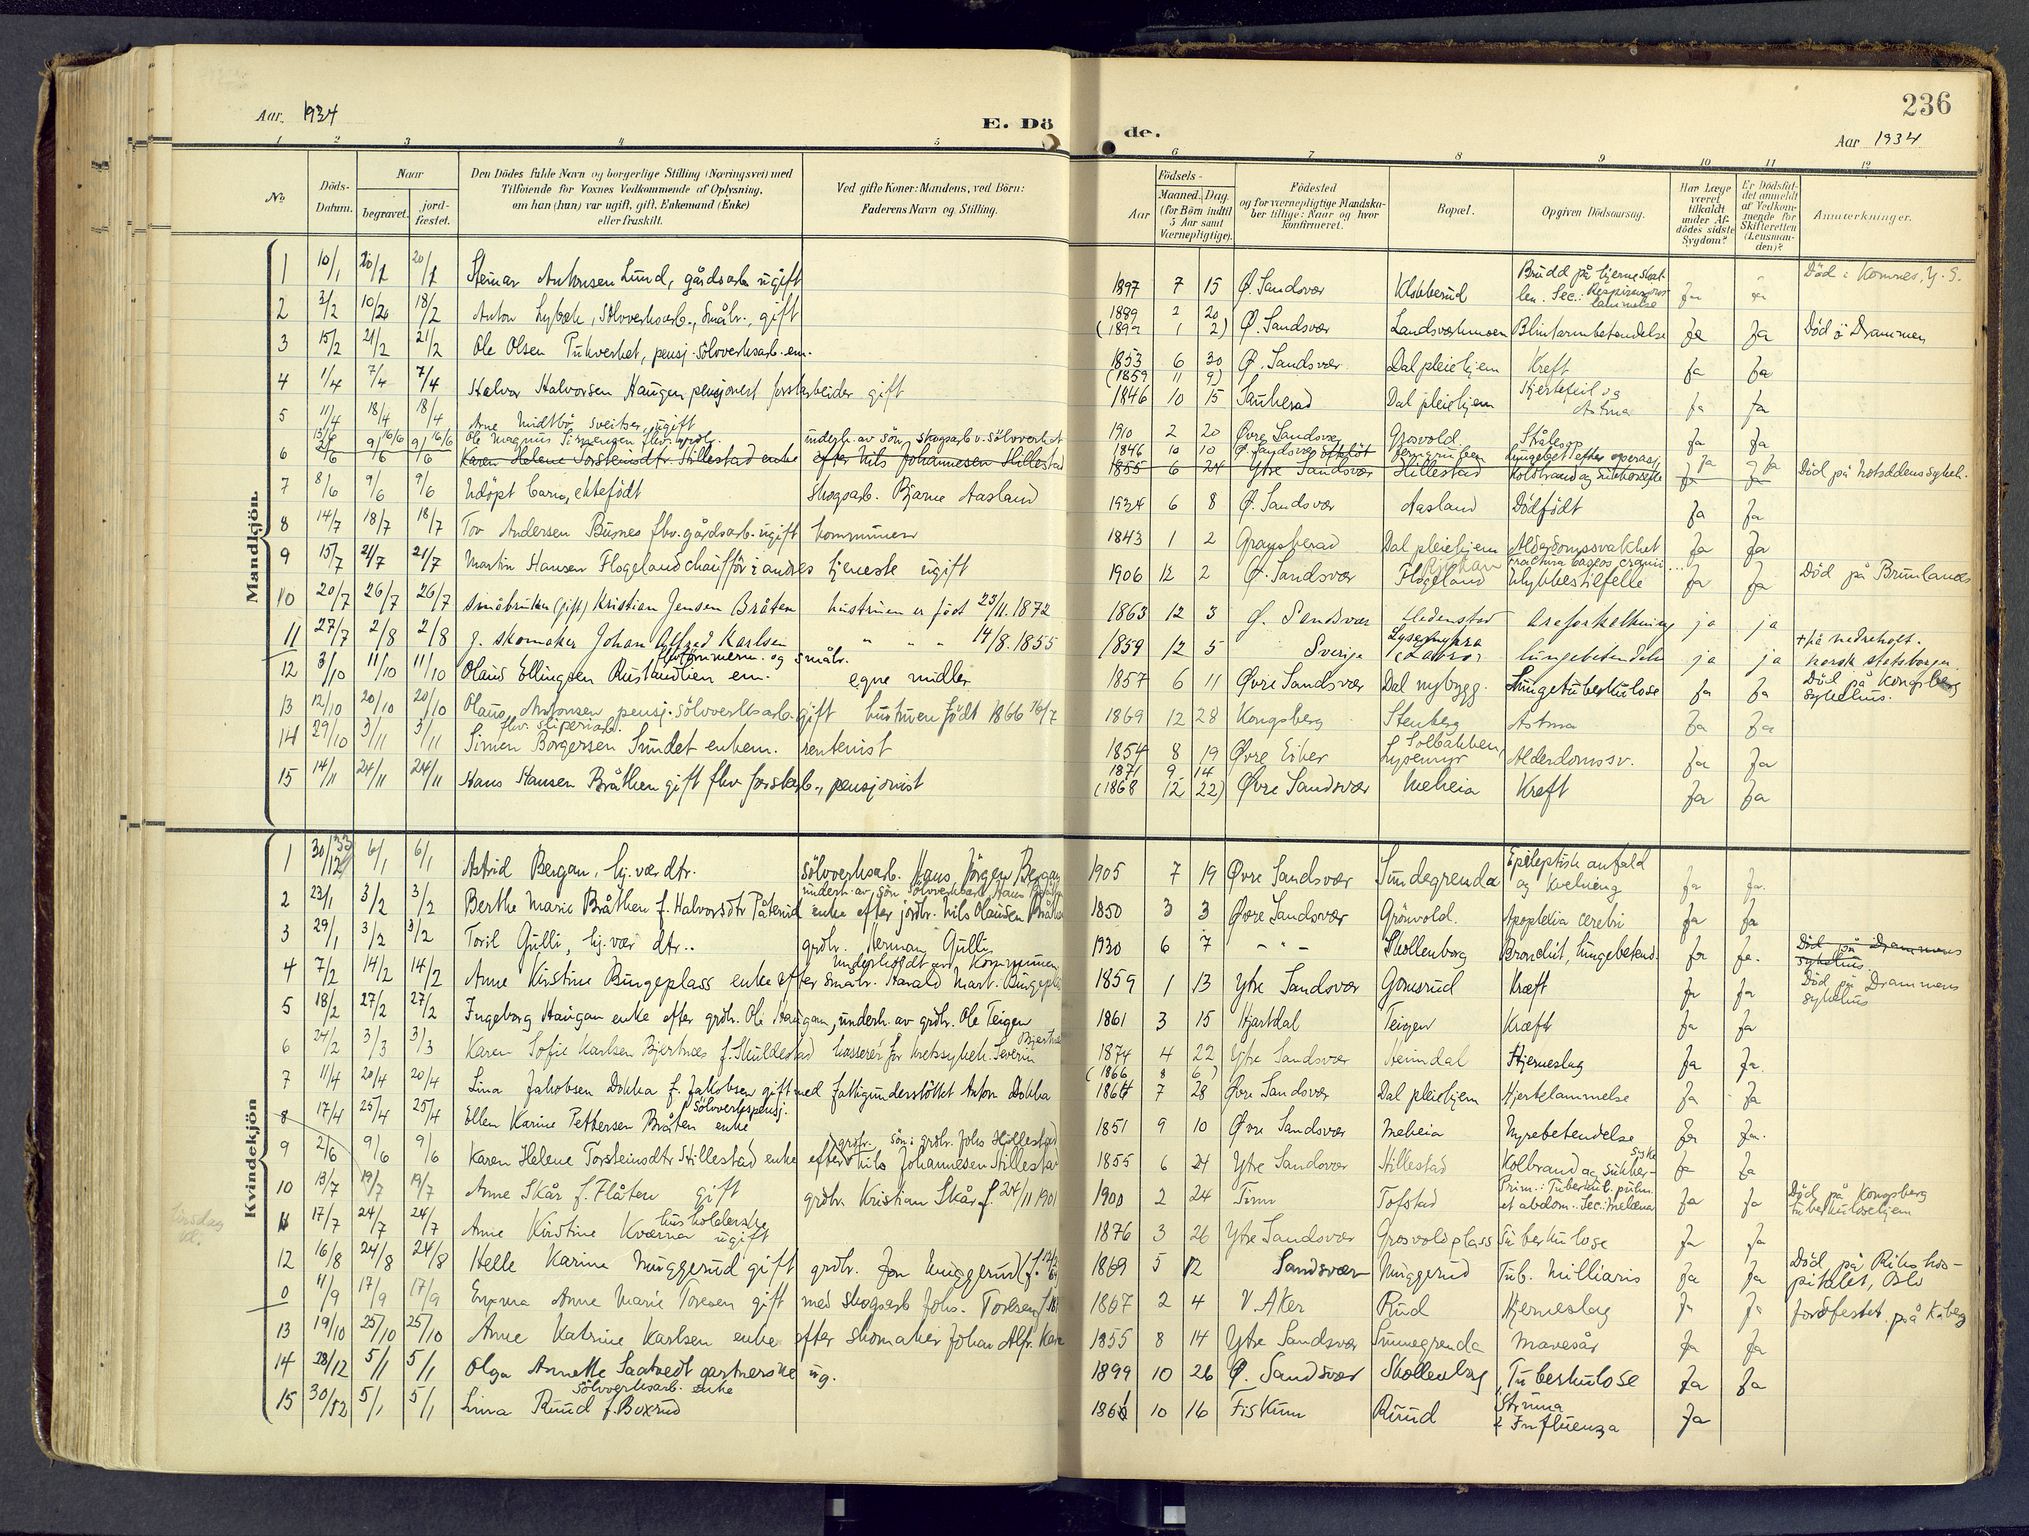 236
Aar. 1934
E. Döde.
Aar 1934
1 2 3 4 5 6 7 8 9 10 11 12
No
Döds-Datum.
Naar
begravet.
jord-fæstet.
Den Dödes fulde Navn og borgerlige Stilling (Næringsvei) med
Tilföiende for Voxnes Vedkommende af Oplysning,
om han (hun) var ugift, gift, Enkemand (Enke)
eller fraskilt.
Ved gifte Koner: Mandens, ved Börn:
Faderens Navn og Stilling.
Födsels-
Aar
Maaned. Dag.
(for Börn indtil
5 Aar samt
Værnepligtige).
Födested
og for værnepligtige Mandska-
ber tillige: Naar og hvor
konfirmeret.
Bopæl.
Opgiven Dödsaarsag.
Har Læge
været
tilkaldt
under Af-
dödes sidste
Sygdom?
Er Dödsfal-
det anmeldt
af Vedkom-
mende for
Skifteretten
(Lensman-
den)?
Anmærkninger.
Mandkjön.
1 10/1 20/1 20/1 Steinar Antonsen Lund, gårdsarb. ugift 1897 7 15 Ø. Sandsvær Klobberud Brudd på hjerneskal-
len. Sec.: Respirasjons
lammelse Ja Död i Komnes, Y. S.
2 3/2 10/2 18/2 Anton Lybæk, Sölvverksarb., Småbr., gift 1889 2 20 (1892 1 2) Ø. Sandsvær Landsværkmoen Blintarmbetendelse Ja Ja Död i Drammen
3 15/2 21/2 21/2 Ole Olsen Pukverket, pensj. sölvverksarb. em. 1853 6 30 Ø. Sandsvær Dal pleiehjem Kreft Ja Ja
4 1/4 7/4 7/4 Halvor Halvorsen Haugen pensjonert forstarbeider gift (1859 11 9) 1846 10 15 Sauherad Dal pleiehjem Hjertefeil og
Astma Ja Ja
5 11/4 18/4 18/4 Arne Midtbö, sveitser, ugift 1910 2 20 Øvre Sandsvær Grosvold Ja Ja
6 13/6 16/6 16/6 Ole Magnus Simensen fhv. underh. av sön, skogsarb. v. sölvverket 1846 10 10 Ø. Sandsvær Jerngruben Lungebet. efter operasj. Ja Ja Död på Notoddens sykeh.
2/6 9/6 9/6 Karen Helene Torsteinsdtr. Stillestad enke efter Nils Johannesen Stillestad 1855 6 24 Ytre Sandsvær Stillestad Kolbrand og Sukkersyke Ja Ja
7 8/6 9/6 9/6 Udöpt barn, ektefödt skogsarb. Bjarne Aasland 1934 6 8 Ø. Sandsvær Aasland Dödfödt Ja Ja
8 14/7 18/7 18/7 Tov Andersen Busnes fhv. gårdsarb. ugift kommunen 1843 1 2 Gransherad Dal pleiehjem Alderdomssvakhet Ja Ja
9 15/7 21/7 21/7 Martin Hansen Flogeland chaufför i andres tjeneste ugift 1906 12 2 Ø. Sandsvær Flogeland Fractura baseos cranii...
Ulykkestilfelle Ja Ja Död på Brunlanes
10 20/7 26/7 26/7 Småbruker (gift) Kristian Jensen Bråten hustruen er född 23/11.1872 1863 12 3 Ø. Sandsvær Hedenstad Areforkalkning ja ja
11 27/7 2/8 2/8 g. skomaker Johan Alfred Karlsen " " " 14/8.1855 1859 12 5 Sverige Lysemyra
(Labro) lungebetendelse ja ja + på nedreholt.
norsk statsborger.
12 3/10 11/10 11/10 Olaus Ellingsen Rustandlien em. og småbr. egne midler 1857 6 11 Øvre Sandsvær Dal nybygg. Lungetuberkulose Ja Ja Död på Kongsberg
sykehus.
13 12/10 20/10 20/10 Olaus Antonsen pensj. sölvverksarb. gift hustruen född 1866 16/7 1869 12 28 Kongsberg Stenberg Astma Ja Ja
14 29/10 3/11 3/11 fhv. sliperiarb.
Simen Borgersen Sundet enkem. rentenist 1854 8 19 Øvre Eiker Solbakken,
Lysemyr Alderdomssv. Ja Ja
15 14/11 24/11 24/11 Hans Hansen Bråthen gift fhv forstarb., pensjonist 1871 9 14 (1868 12 22) Øvre Sandsvær Meheia Kreft Ja Ja
Kvindekjön
1 30/12 33 6/1 6/1 Astrid Bergan, hj. vær. dtr. sölvverksarb. Hans Jörgen Bergan 1905 7 19 Øvre Sandsvær Sundegrenda Epileptisk anfald
og kvelning Ja Ja.
2 23/1 3/2 3/2 Berthe Marie Bråthen f. Halvorsdtr Påterud underh. av sön sölvverksarb. Hans Bråthen
enke efter jordbr. Nils Olausen Bråthen 1850 3 3 Øvre Sandsvær Grönvold. Apoplexia cerebri Ja Ja
3 29/1 3/2 3/2 Toril Gulli, hj. vær. dtr.. grdbr. Herman Gulli 1930 6 7 - " - Skollenborg Bronchit, lungebetend. Ja Ja. Död på Drammens
sykehus
4 7/2 14/2 14/2 Anne Kirstine Bingeplass enke efter småbr. Harald Mart. Bingepl. Underholdt av Kommunen 1859 1 13 Ytre Sandsvær Gomsrud Kræft Ja Ja Död på Drammens
sykehus
5 18/2 27/2 27/2 Ingeborg Haugan enke efter grdbr. Ole Haugan, underh. av grdbr. Ole Teigen 1861 3 15 Hjartdal Teigen Kræft Ja Ja
6 24/2 3/3 3/3 Karen Sofie Karlsen Bjertnes f. Skuldestad kasserer for kretssykek. Severin Bjertnes 1874 4 22 (1866 8 6) Ytre Sandsvær Heimdal Hjerneslag Ja Ja.
7 11/4 20/4 20/4 Lina Jakobsen Dokka f. Jakobsen gift med fattigunderstöttet Anton Dokka 1864 7 28 Øvre Sandsvær Dal pleiehjem Hjertelammelse Ja Ja
8 17/4 25/4 25/4 Ellen Karine Pettersen Bråten enke sölvverkspensj. 1851 9 10 Øvre Sandsvær Meheia Nyrebetendelse Ja Ja.
9 2/6 9/6 9/6 Karen Helene Torsteinsdtr Stillestad enke efter grdbr. Nils Johannesen Stillestad sön: grdbr. Johs Stillestad 1855 6 24 Ytre Sandsvær Stillestad Kolbrand og sukker-
syke Ja Ja
10 13/7 19/7 19/7 Anne Skår f. Flåten gift grdbr. Kristian Skår f. 24/11 1901 1900 2 24 Tinn Tofstad Prim.: Tuberkul. pulm.
et abdom. Sec: melæna Ja Ja Död på Kongsberg
tuberkulosehjem
11 17/7 24/7 24/7 Anne Kirstine Kværna husholderske ugift 1876 3 26 Ytre Sandsvær Grosvoldplass Tuberkulose Ja Ja
12 16/8 24/8 24/8 Helle Karine Muggerud gift grdbr. Jon Muggerud 1869 5 12 Sandsvær Muggerud Tub. Milliaris Ja Ja Död på Rikshos-
pitalet, Oslo
0 11/9 17/9 17/9 Emma Anne Marie Toresen gift med skogsarb Johs. Toresen 1867 2 4 V. Aker Rud Hjerneslag Ja Ja Jordfestet på K.berg
13 19/10 25/10 25/10 Anne Katrine Karlsen enke efter skomaker Johan Alfr. Karl 1855 8 14 Ytre Sandsvær Sunnegrenda Mavesår Ja Ja
14 28/12 5/1 5/1 Olga Annette Saatvedt gartnerske ug. 1899 10 26 Ø. Sandsvær Skollenborg Tuberkulose Ja Ja
15 30/12 5/1 5/1 Sölvverksarb. enke
Lina Ruud f. Boxrud 1866 10 16 Fiskum Ruud Struma
& Influenza Ja